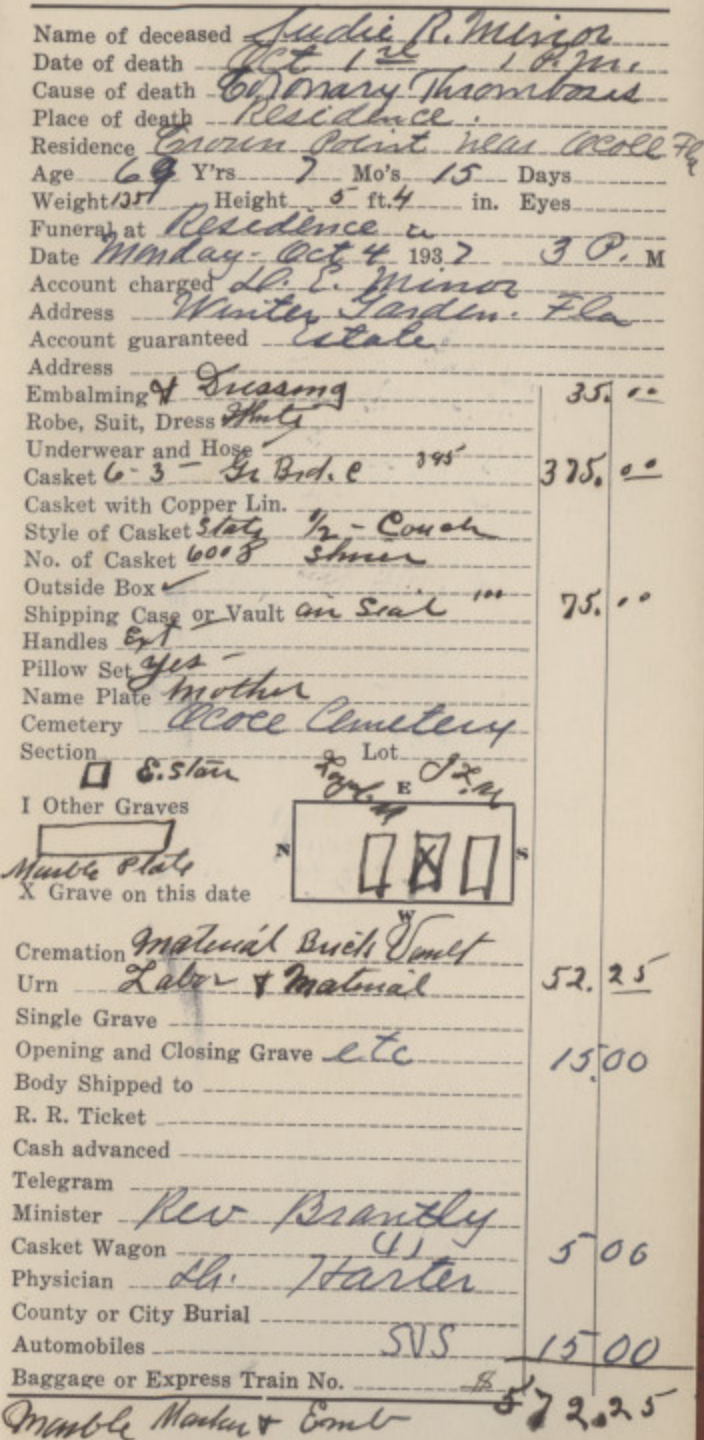 Name of deceased Sudie R. Minor
Date of death Oct 1st 1 P.m.
Cause of death Coronary Thrombosis
Place of death Residence.
Residence Crown Point near Ocoee Fla
Age 69 Y'rs 7 Mo's 15 Days
Weight 135 Height 5 ft. 4 in. Eyes
Funeral at Residence
Date Monday - Oct 4 1937 3 P. M
Account charged E. Minor
Address Winter Garden. Fla
Account guaranteed Estate
Address
Embalming & Dressing 35.00
Robe, Suit, Dress White
Underwear and Hose
Casket 6-3 - Gr Brd. C 395 375.00
Casket with Copper Lin.
Style of Casket State 1/2 - Couch
No. of Casket 6008
Outside Box ✓
Shipping Case or Vault air Seal 75.00
Handles Ext
Pillow Set yes -
Name Plate Mother
Cemetery Ocoee Cemetery
Section Lot
E. Starr J L. M
E
I Other Graves
N X S
Marble Plate
X Grave on this date
W
Cremation Material Brick Vault
Urn Labor & Material 52.25
Single Grave
Opening and Closing Grave etc 15.00
Body Shipped to
R. R. Ticket
Cash advanced
Telegram
Minister Rev Brantly
Casket Wagon 5 00
Physician Dr. Harter
County or City Burial
Automobiles SVS 15 00
Baggage or Express Train No. $ 572.25
Marble Marker & Emb